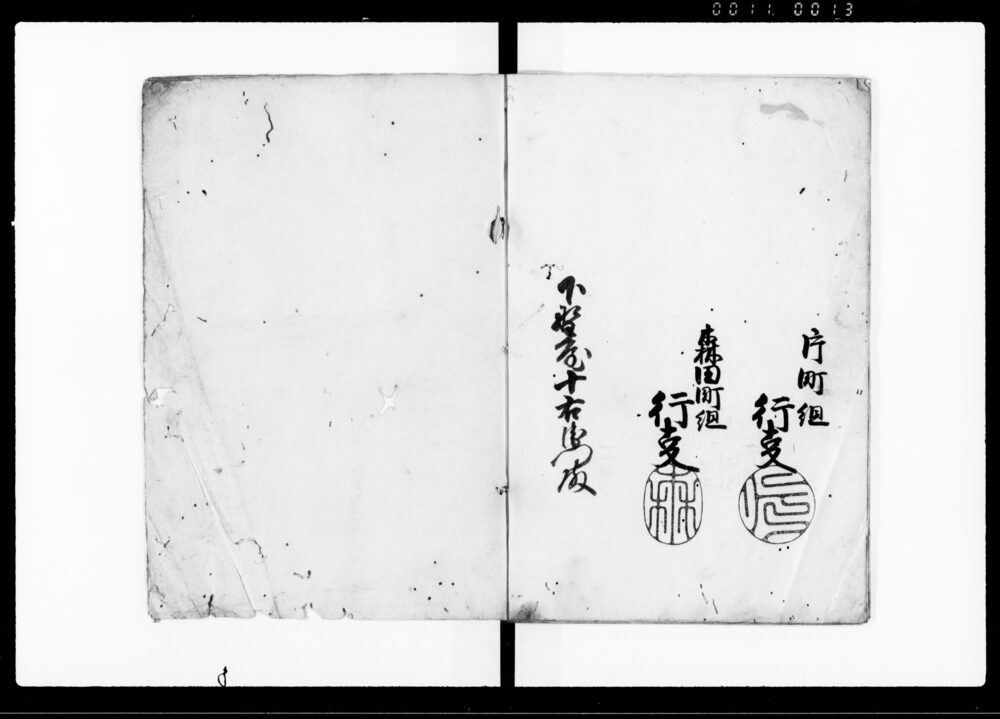 0011 0013
片町組
行事
森田町組
行事
下野屋十右衛門殿